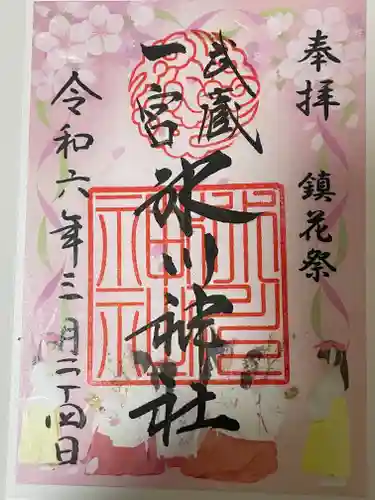 奉拝　鎮花祭
武蔵
一宮
氷川神社
令和六年三月二十四日
氷川神社